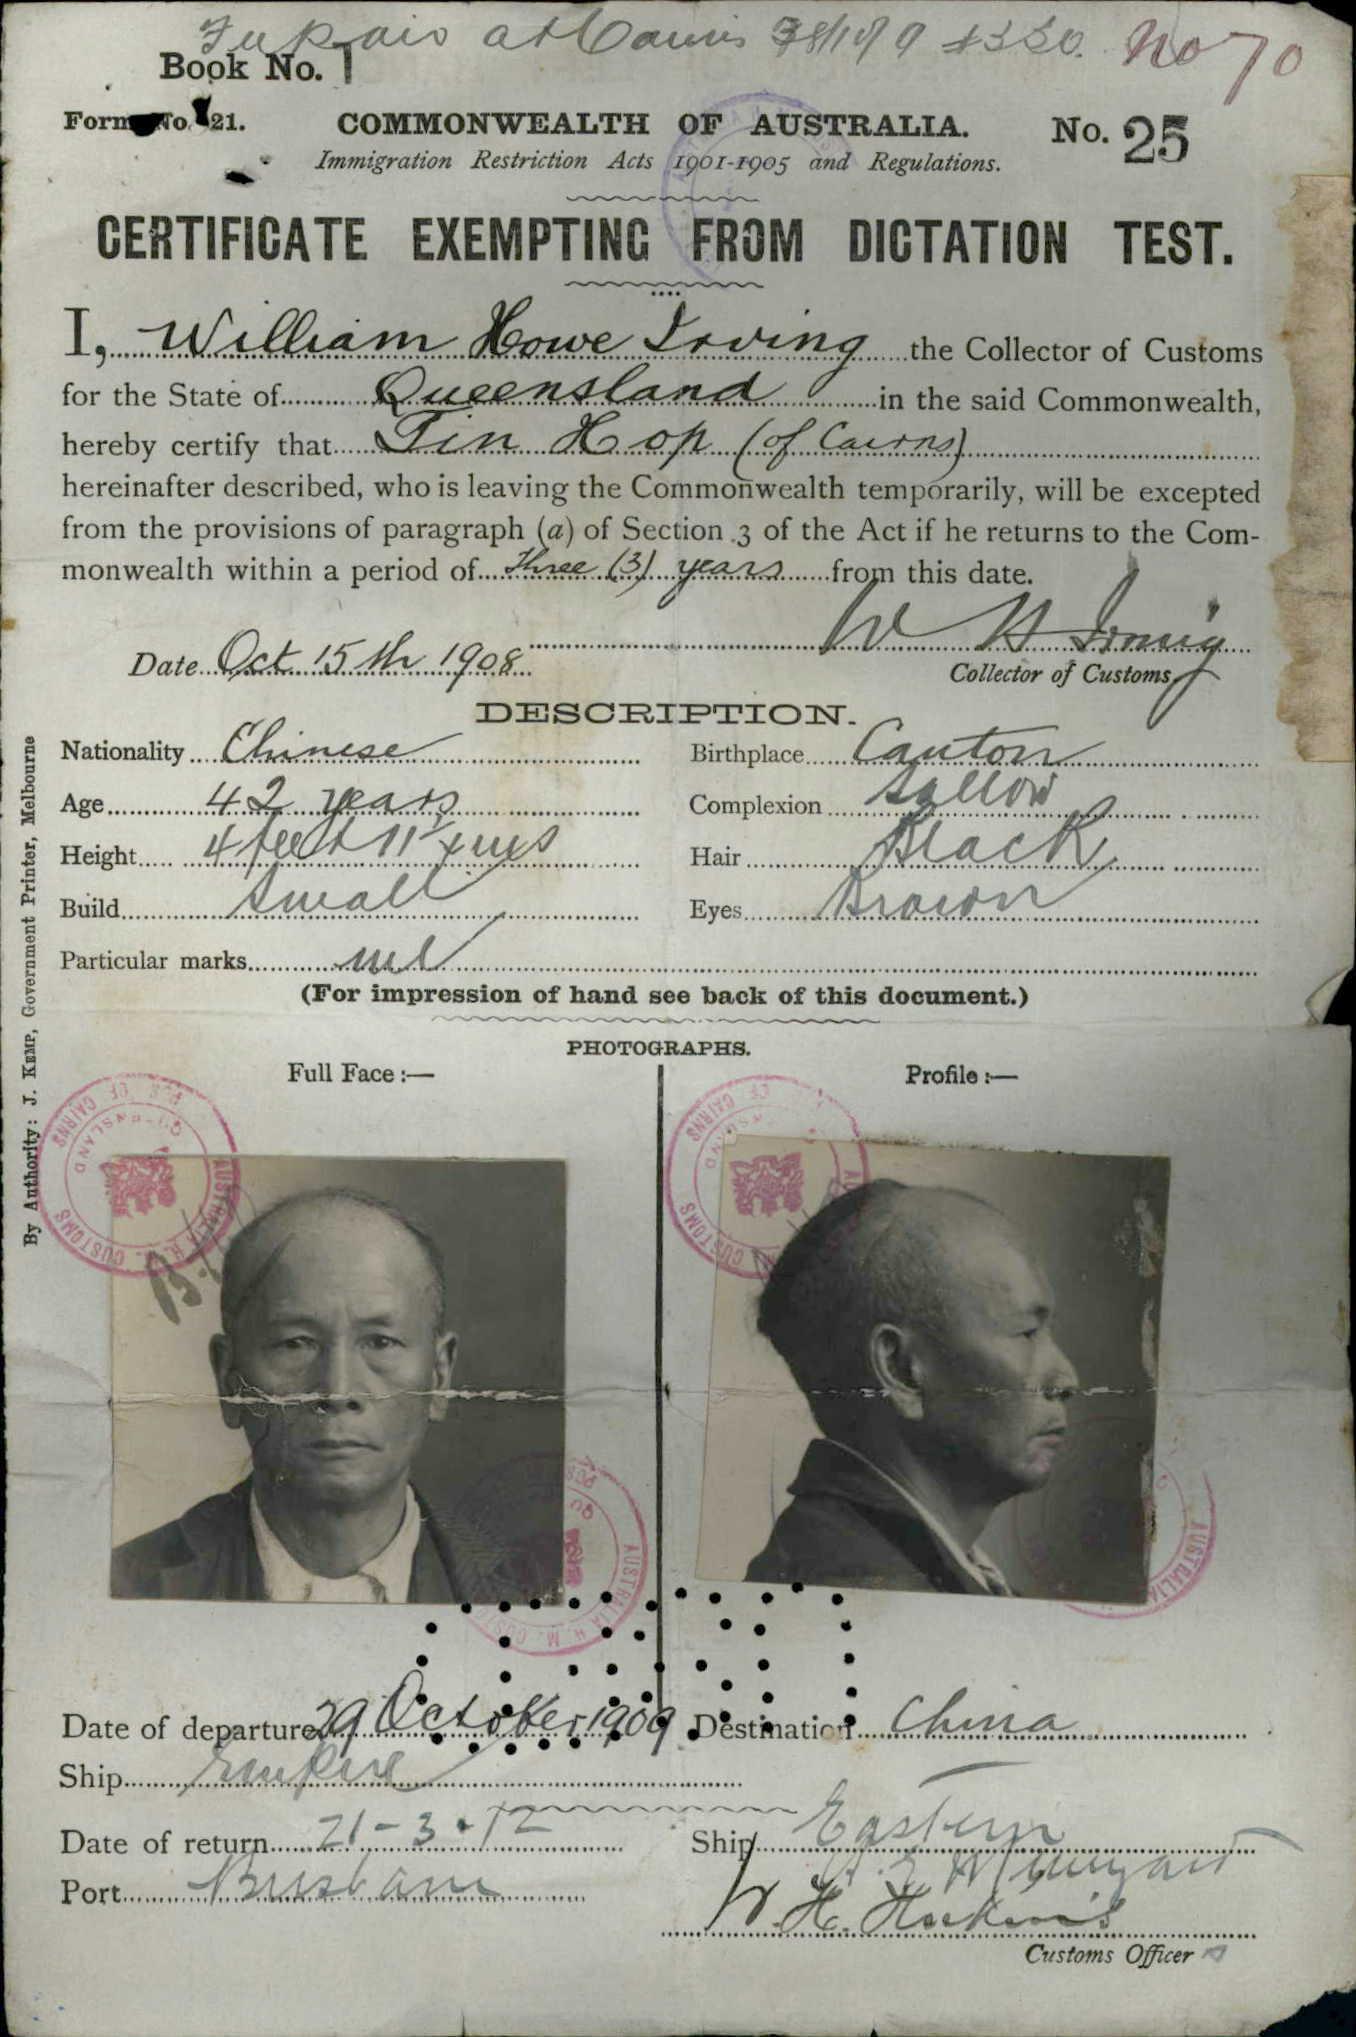 at Cairns No 70
Book No. 1
Form No. 21.
COMMONWEALTH OF AUSTRALIA.
No. 25
Immigration Restriction Acts 1901-1905 and Regulations.
CERTIFICATE EXEMPTING FROM DICTATION TEST.
I, William Howe Irving the Collector of Customs
for the State of Queensland in the said Commonwealth,
hereby certify that Tin Hop (of Cairns)
hereinafter described, who is leaving the Commonwealth temporarily, will be excepted
from the provisions of paragraph (a) of Section 3 of the Act if he returns to the Com-
monwealth within a period of Three (3) years from this date.
W H Irving
Date Oct 15th 1908
Collector of Customs
DESCRIPTION.
Nationality Chinese Birthplace Canton
Age 42 years Complexion Sallow
Height 4 feet 11 ins Hair Black
Build Small Eyes Brown
Particular marks nil
(For impression of hand see back of this document.)
By Authority: J. KEMP, Government Printer, Melbourne
PHOTOGRAPHS.
Full Face :— Profile :—
AUSTRALIA H. M. CUSTOMS
QUEENSLAND
OF CAIRNS
Date of departure 29 October 1909 Destination China
Ship Empire
Date of return 21-3-12 Ship Eastern
Port Brisbane
W. H.
Customs Officer